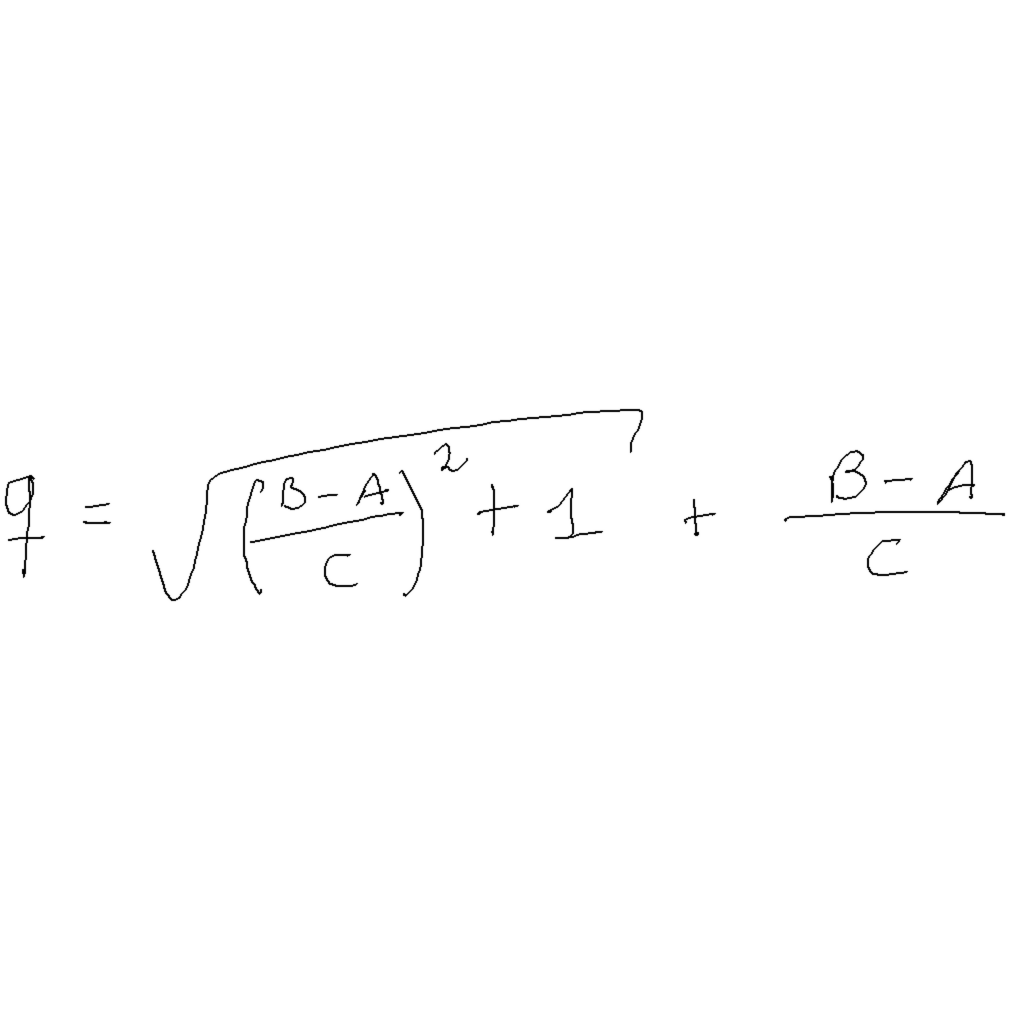 q = √((B-A)/C)² + 1) + (B-A)/C